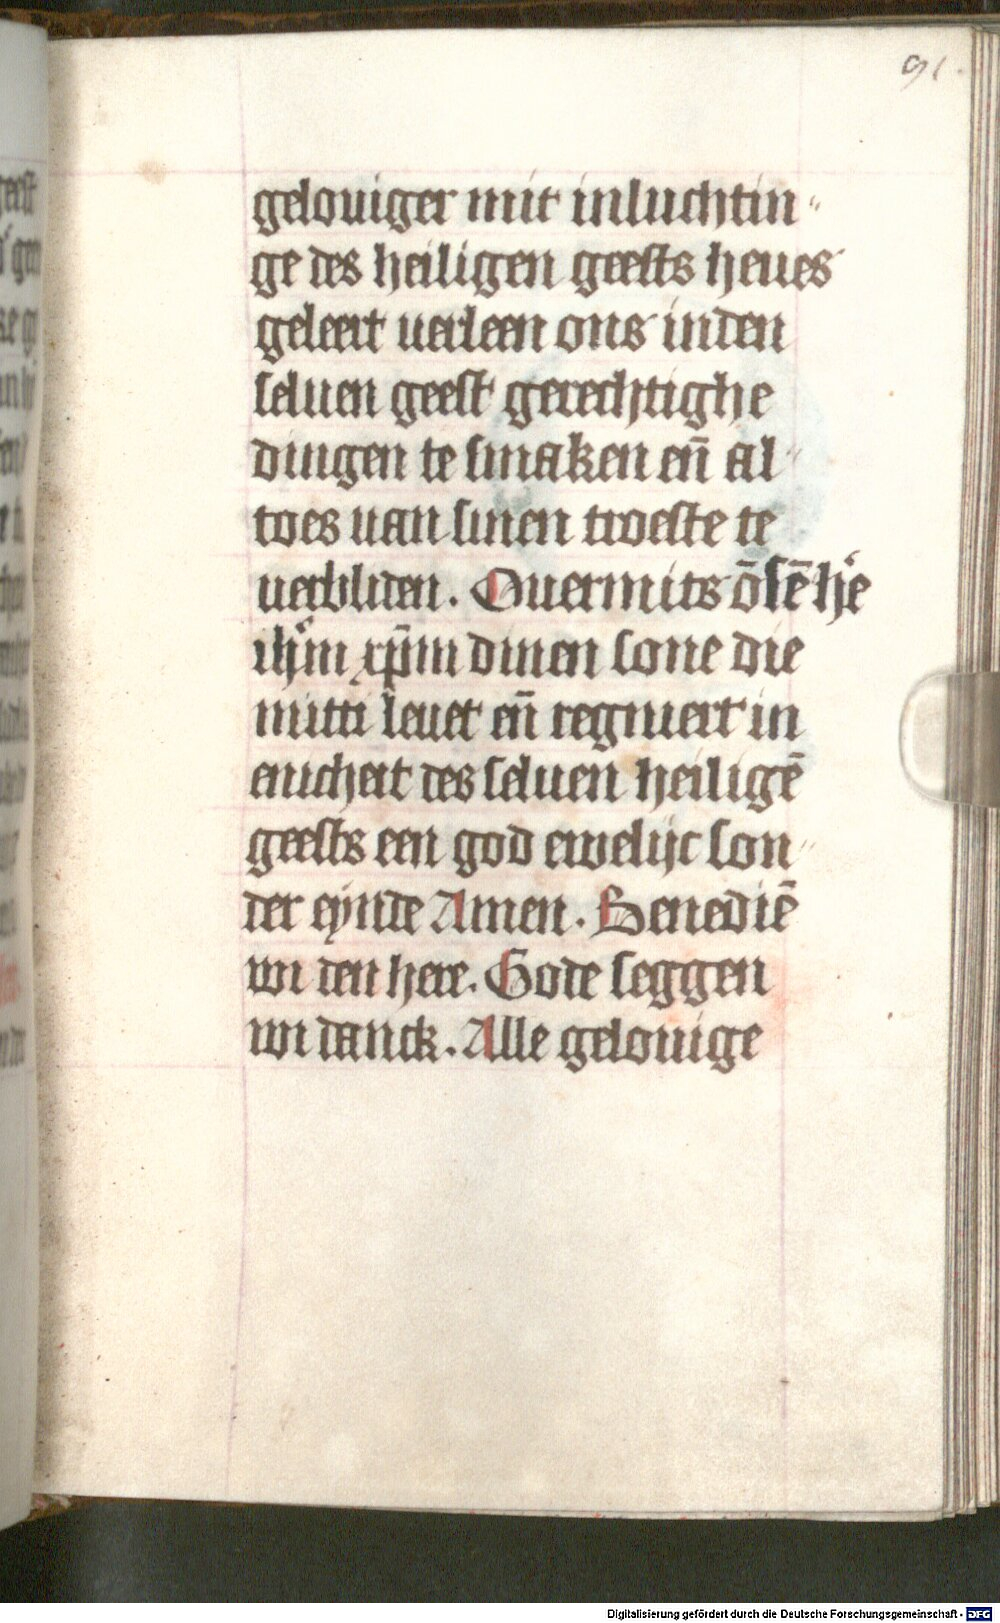 91.
gelouiger mit inluchtin-
ge des heiligen geests heues
geleert uerleen ons inden
seluen geest gerechtighe
dingen te smaken en̄ al-
toes uan sinen troeste te
uerbliden. Ouermits ōsē hʼe
ihʼm xp̄m dinen sone die
mitti leuet en̄ regniert in
enicheit des seluen heiligē
geests een god ewelijc son-
der eynde Amen. Benediē
wi den here. Gode seggen
wi danck. Alle gelouige
Digitalisierung gefördert durch die Deutsche Forschungsgemeinschaft - DFG